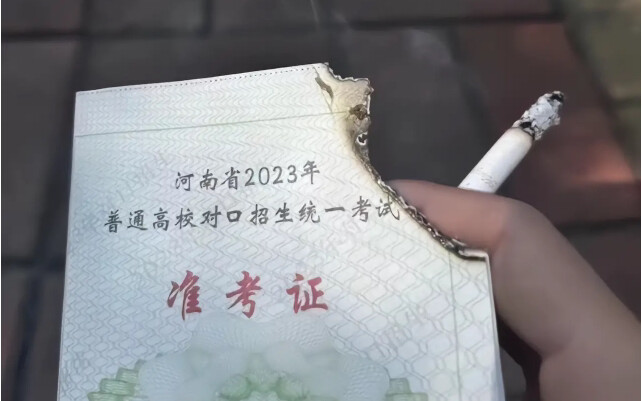 河南省2023年
普通高校对口招生统一考试
准考证